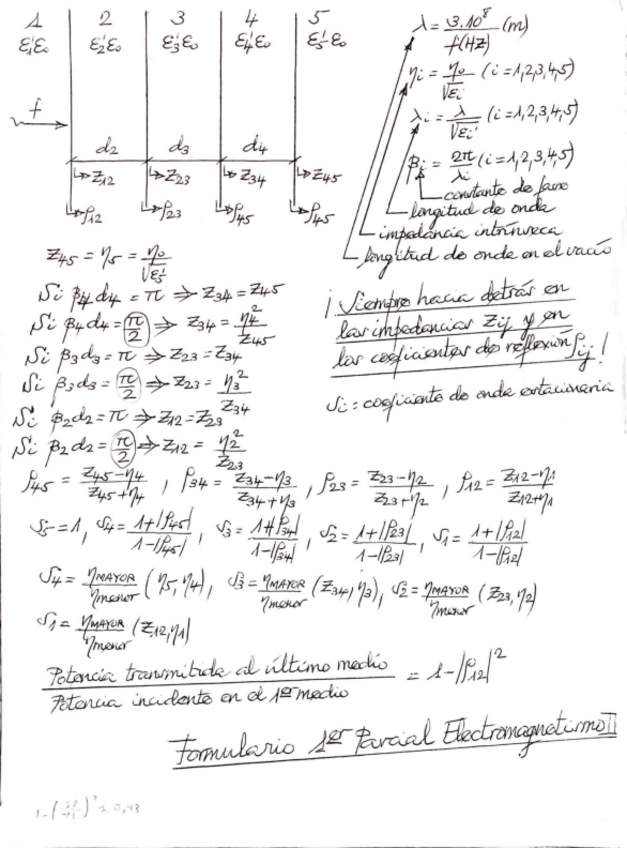 1 2 3 4 5
ε₁'ε₀ ε₂'ε₀ ε₃'ε₀ ε₄'ε₀ ε₅'ε₀
f
d₂ d₃ d₄
Z₁₂ Z₂₃ Z₃₄ Z₄₅
ρ₁₂ ρ₂₃ ρ₄₅ ρ₄₅
λ = 3·10⁸/f(Hz) (m)
ηᵢ = η₀/√εᵢ' (i=1,2,3,4,5)
λᵢ = λ/√εᵢ' (i=1,2,3,4,5)
βᵢ = 2π/λᵢ (i=1,2,3,4,5)
constante de fase
longitud de onda
impedancia intrínseca
longitud de onda en el vacío
Z₄₅ = η₅ = η₀/√ε₅'
Si β₄d₄ = π ⇒ Z₃₄ = Z₄₅
Si β₄d₄ = π/2 ⇒ Z₃₄ = η₄²/Z₄₅
Si β₃d₃ = π ⇒ Z₂₃ = Z₃₄
Si β₃d₃ = π/2 ⇒ Z₂₃ = η₃²/Z₃₄
Si β₂d₂ = π ⇒ Z₁₂ = Z₂₃
Si β₂d₂ = π/2 ⇒ Z₁₂ = η₂²/Z₂₃
¡Siempre hacia detrás en
las impedancias Zij y en
los coeficientes de reflexión ρij!
Si: coeficiente de onda estacionaria
ρ₄₅ = (Z₄₅-η₄)/(Z₄₅+η₄), ρ₃₄ = (Z₃₄-η₃)/(Z₃₄+η₃), ρ₂₃ = (Z₂₃-η₂)/(Z₂₃+η₂), ρ₁₂ = (Z₁₂-η₁)/(Z₁₂+η₁)
S₅ = 1, S₄ = (1+|ρ₄₅|)/(1-|ρ₄₅|), S₃ = (1+|ρ₃₄|)/(1-|ρ₃₄|), S₂ = (1+|ρ₂₃|)/(1-|ρ₂₃|), S₁ = (1+|ρ₁₂|)/(1-|ρ₁₂|)
S₄ = η MAYOR/η menor (η₅, η₄), S₃ = η MAYOR/η menor (Z₃₄, η₃), S₂ = η MAYOR/η menor (Z₂₃, η₂)
S₁ = η MAYOR/η menor (Z₁₂, η₁)
Potencia transmitida al último medio
Potencia incidente en el 1er medio
= 1-|ρ₁₂|²
Formulario 1er Parcial Electromagnetismo II